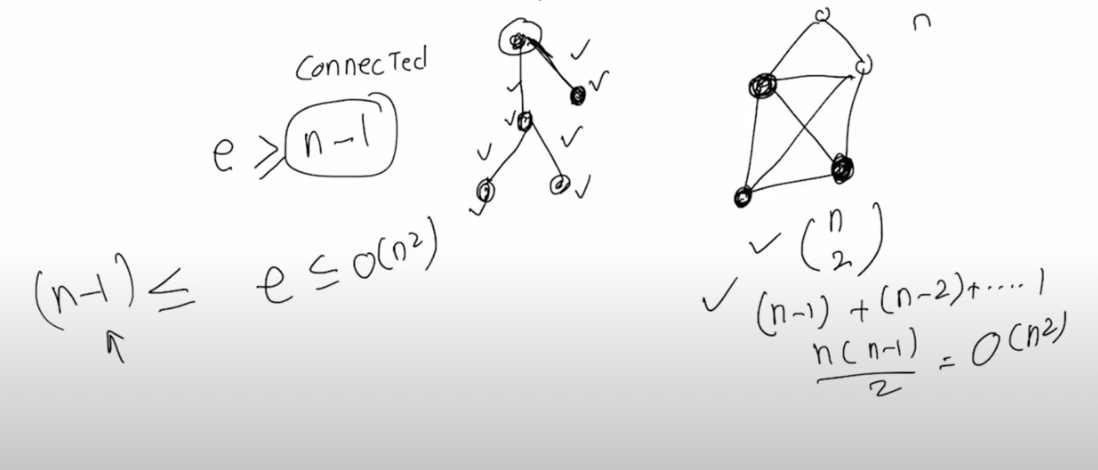 n
Connected
e ≥ n-1
(n-1) ≤ e ≤ O(n²)
(n 2)
(n-1) + (n-2)+.....1
n(n-1)/2 = O(n²)